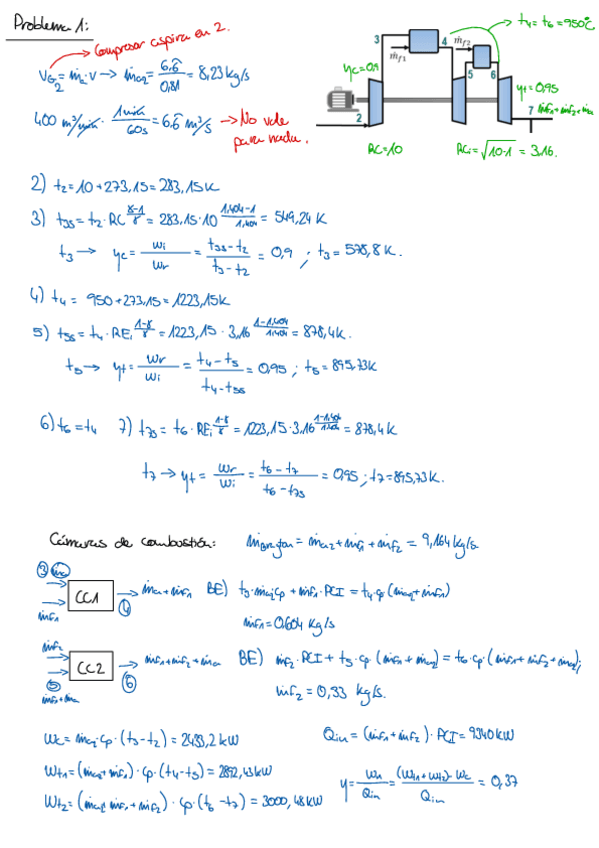 Problema 1:
Compresor aspira en 2.
V̇G2 = ṁa · v → ṁa2 = 6,6̂ / 0,81 = 8,23 kg/s
400 m³/min · 1 min / 60s = 6,6̂ m³/s → No vale para nada.
t4 = t6 = 950°C
3
4
ṁf1
ṁf2
5
6
ηc = 0,9
ηt = 0,95
2
7
ṁf1+ṁf2+ṁa
RC = 10
RCi = √10·1 = 3,16.
2) t2 = 10 + 273,15 = 283,15 K
3) t3s = t2 · RC^(γ-1/γ) = 283,15 · 10^(1,404-1/1,404) = 549,24 K
t3 → ηc = wi / wr = t3s - t2 / t3 - t2 = 0,9 ; t3 = 578,8 K.
4) t4 = 950 + 273,15 = 1223,15 K
5) t5s = t4 · REi^(1-γ/γ) = 1223,15 · 3,16^(1-1,404/1,404) = 878,4 K.
t5 → ηt = wr / wi = t4 - t5 / t4 - t5s = 0,95 ; t5 = 895,73 K
6) t6 = t4 7) t7s = t6 · REi^(1-γ/γ) = 1223,15 · 3,16^(1-1,404/1,404) = 878,4 K
t7 → ηt = wr / wi = t6 - t7 / t6 - t7s = 0,95 ; t7 = 895,73 K.
Cámaras de combustión: ṁBrayton = ṁa2 + ṁf1 + ṁf2 = 9,164 kg/s
3 ṁa
ṁf1
CC1
4
ṁa + ṁf1
BE) t3·ṁa2·cp + ṁf1·PCI = t4·cp (ṁa2+ṁf1)
ṁf1 = 0,604 kg/s
ṁf2
5
ṁf1+ṁa
CC2
6
ṁf1+ṁf2+ṁa
BE) ṁf2·PCI + t5·cp·(ṁf1+ṁa2) = t6·cp·(ṁf1+ṁf2+ṁa2);
ṁf2 = 0,33 kg/s.
Wc = ṁa2·cp·(t3-t2) = 2433,2 kW
Qin = (ṁf1+ṁf2)·PCI = 9340 kW
Wt1 = (ṁa2+ṁf1)·cp·(t4-t5) = 2892,43 kW
Wt2 = (ṁa2+ṁf1+ṁf2)·cp·(t6-t7) = 3000,48 kW
η = Wn / Qin = (Wt1+Wt2)-Wc / Qin = 0,37